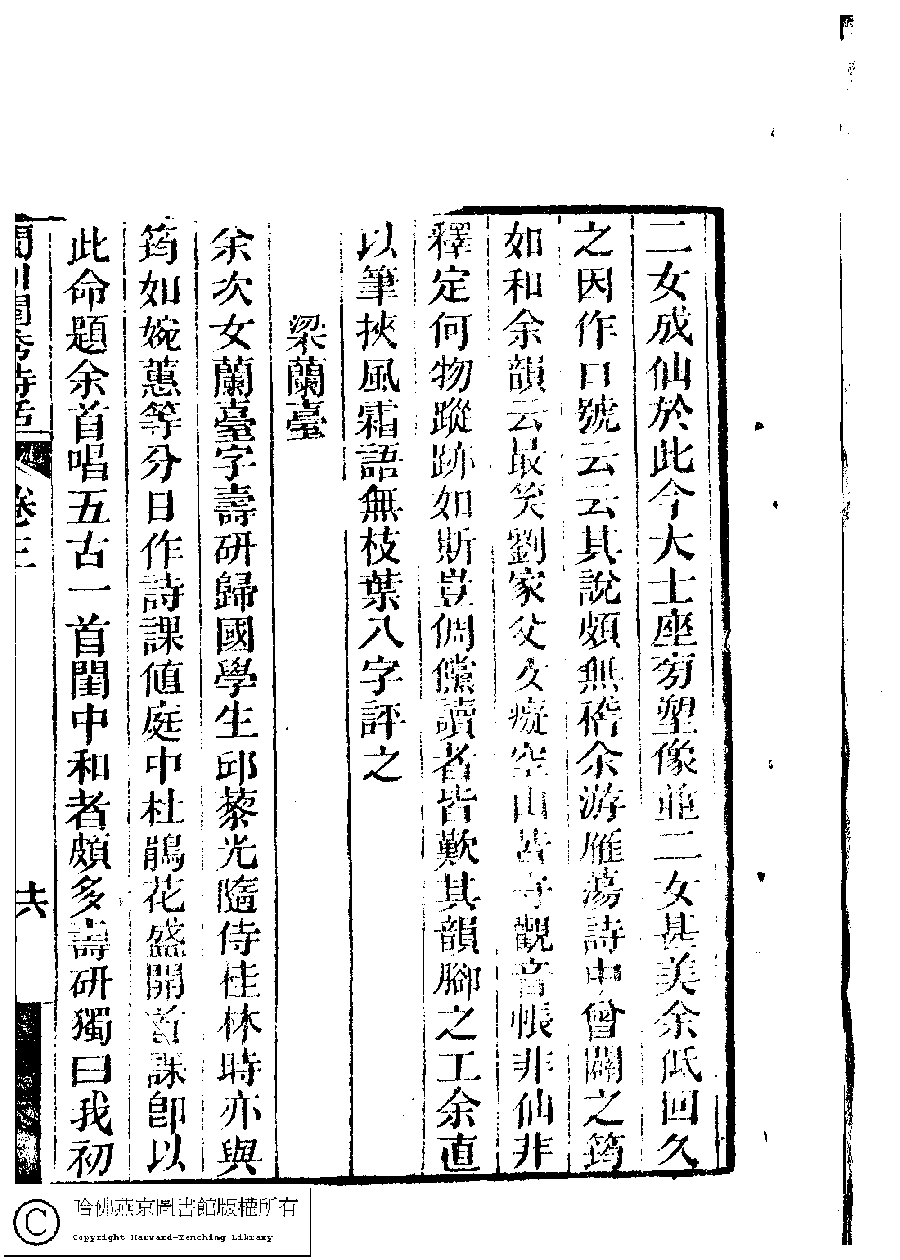 二女成仙於此今大士座旁塑像並二女甚美余低回久
之因作口號云云其說頗無稽余游雁蕩詩中曾闢之筠
如和余韻云最笑劉家父女癡空山苦守觀音帳非仙非
釋定何物蹤跡如斯豈倜儻讀者皆歎其韻腳之工余直
以筆挾風霜語無枝葉八字評之
梁蘭臺
余次女蘭臺字壽研歸國學生邱藜光隨侍桂林時亦與
筠如婉蕙等分日作詩課值庭中杜鵑花盛開首課卽以
此命題余首唱五古一首閨中和者頗多壽研獨曰我初
閩川閨秀詩話
卷三
十六
哈佛燕京圖書館版權所有
Copyright Harvard-Yenching Library